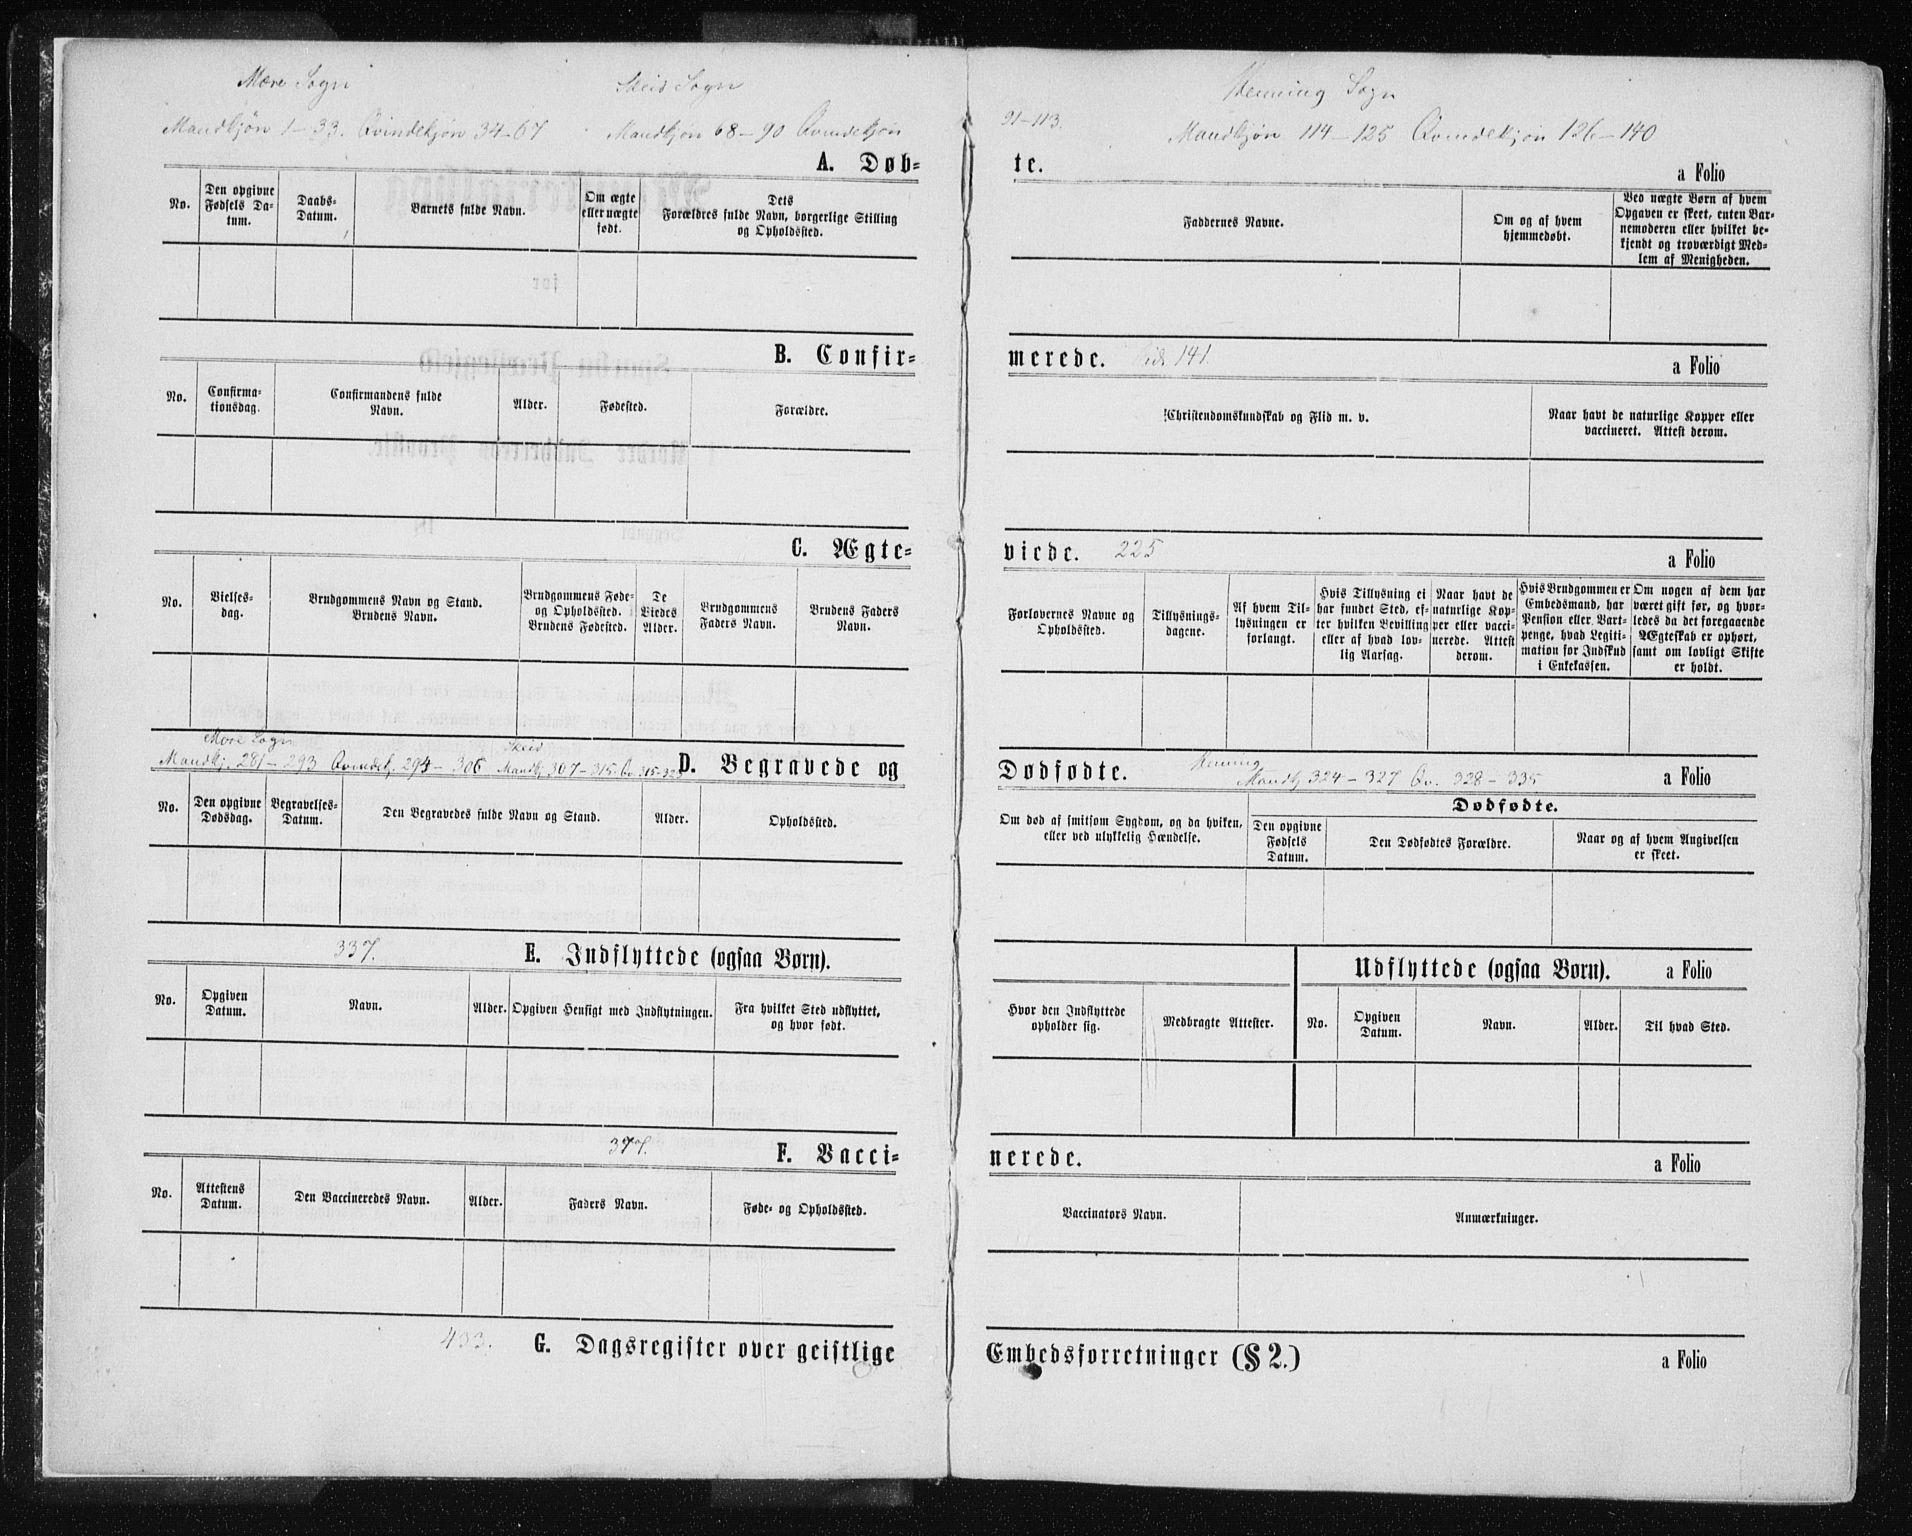 Mære Sogn
Skeis Sogn
Henning Sogn
Mandkjøn 1-33. Qvindekjøn 34-67
Mandkjøn 68-90 Qvindekjøn
91-113.
Mandkjøn 114-125 Qvindekjøn 126-140
A. Døb-
te.
a Folio
No.
Den opgivne Fødsels Da-tum.
Daabs-Datum.
Barnets fulde Navn.
Om ægte eller uægte født.
Dets Forældres fulde Navn, borgerlige Stilling og Opholdssted.
Faddernes Navne.
Om og af hvem hjemmedøbt.
Ved uægte Børn af hvem Opgaven er skeet, enten Bar-nemoderen eller hvilket be-kjendt og troværdigt Med-lem af Menigheden.
B. Confir-
merede.
141.
a Folio
No.
Confirma-tionsdag.
Confirmandens fulde Navn.
Alder.
Fødested.
Forældre.
Christendomskundskab og Flid m. v.
Naar havt de naturlige Kopper eller vaccineret. Attest derom.
C. Ægte-
viede.
225
a Folio
No.
Vielses-dag.
Brudgommens Navn og Stand. Brudens Navn.
Brudgommens Føde- og Opholdssted. Brudens Fødested.
De Viedes Alder.
Brudgommens Faders Navn.
Brudens Faders Navn.
Forlovernes Navne og Opholdssted.
Tillysnings-dagene.
Af hvem Til-lysningen er forlangt.
Hvis Tillysning ei har fundet Sted, ef-ter hvilken Bevilling eller af hvad lov-lig Aarsag.
Naar havt de naturlige Kop-per eller vacci-nerede. Attest derom.
Hvis Brudgommen er Embedsmand, har Pension eller Vart-penge, hvad Legiti-mation for Indskud i Enkekassen.
Om nogen af dem har været gift før, og hvor-ledes da det foregaaende Ægteskab er ophørt, samt om lovligt Skifte er holdt.
Mære Sogn
Skeis
Mandkj. 281-293 Qvindekj. 294-306 Mandkj 307-315. Qv. 315-323
D. Begravede og
Dødfødte.
Henning
Mandkj 324-327 Qv. 328-335
a Folio
No.
Den opgivne Dødsdag.
Begravelses-Datum.
Den Begravedes fulde Navn og Stand.
Alder.
Opholdssted.
Om død af smitsom Sygdom, og da hviken, eller ved ulykkelig Hændelse.
Dødfødte.
Den opgivne Fødsels Datum.
Den Dødfødtes Forældre.
Naar og af hvem Angivelsen er skeet.
337.
E. Indflyttede (ogsaa Børn).
Udflyttede (ogsaa Børn).
a Folio
No.
Opgiven Datum.
Navn.
Alder.
Opgiven Hensigt med Indflytningen.
Fra hvilket Sted udflyttet, og hvor født.
Hvor den Indflyttede opholder sig.
Medbragte Attester.
No.
Opgiven Datum.
Navn.
Alder.
Til hvad Sted.
F. Vacci-
nerede.
a Folio
No.
Attestens Datum.
Den Vaccineredes Navn.
Alder.
Faders Navn.
Føde- og Opholdssted.
Vaccinators Navn.
Anmærkninger.
433.
G. Dagsregister over geistlige
Embedsforretninger (§ 2.)
a Folio